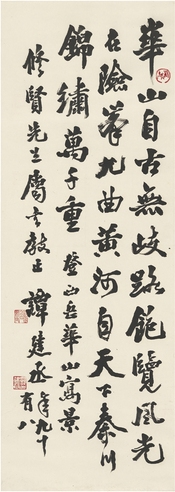 華山自古無歧路飽覽風光
在險峯九曲黃河自天下秦川
錦繡萬千重 登西岳華山寫景
修賢先生屬書敎正 譚建丞年九十
有八